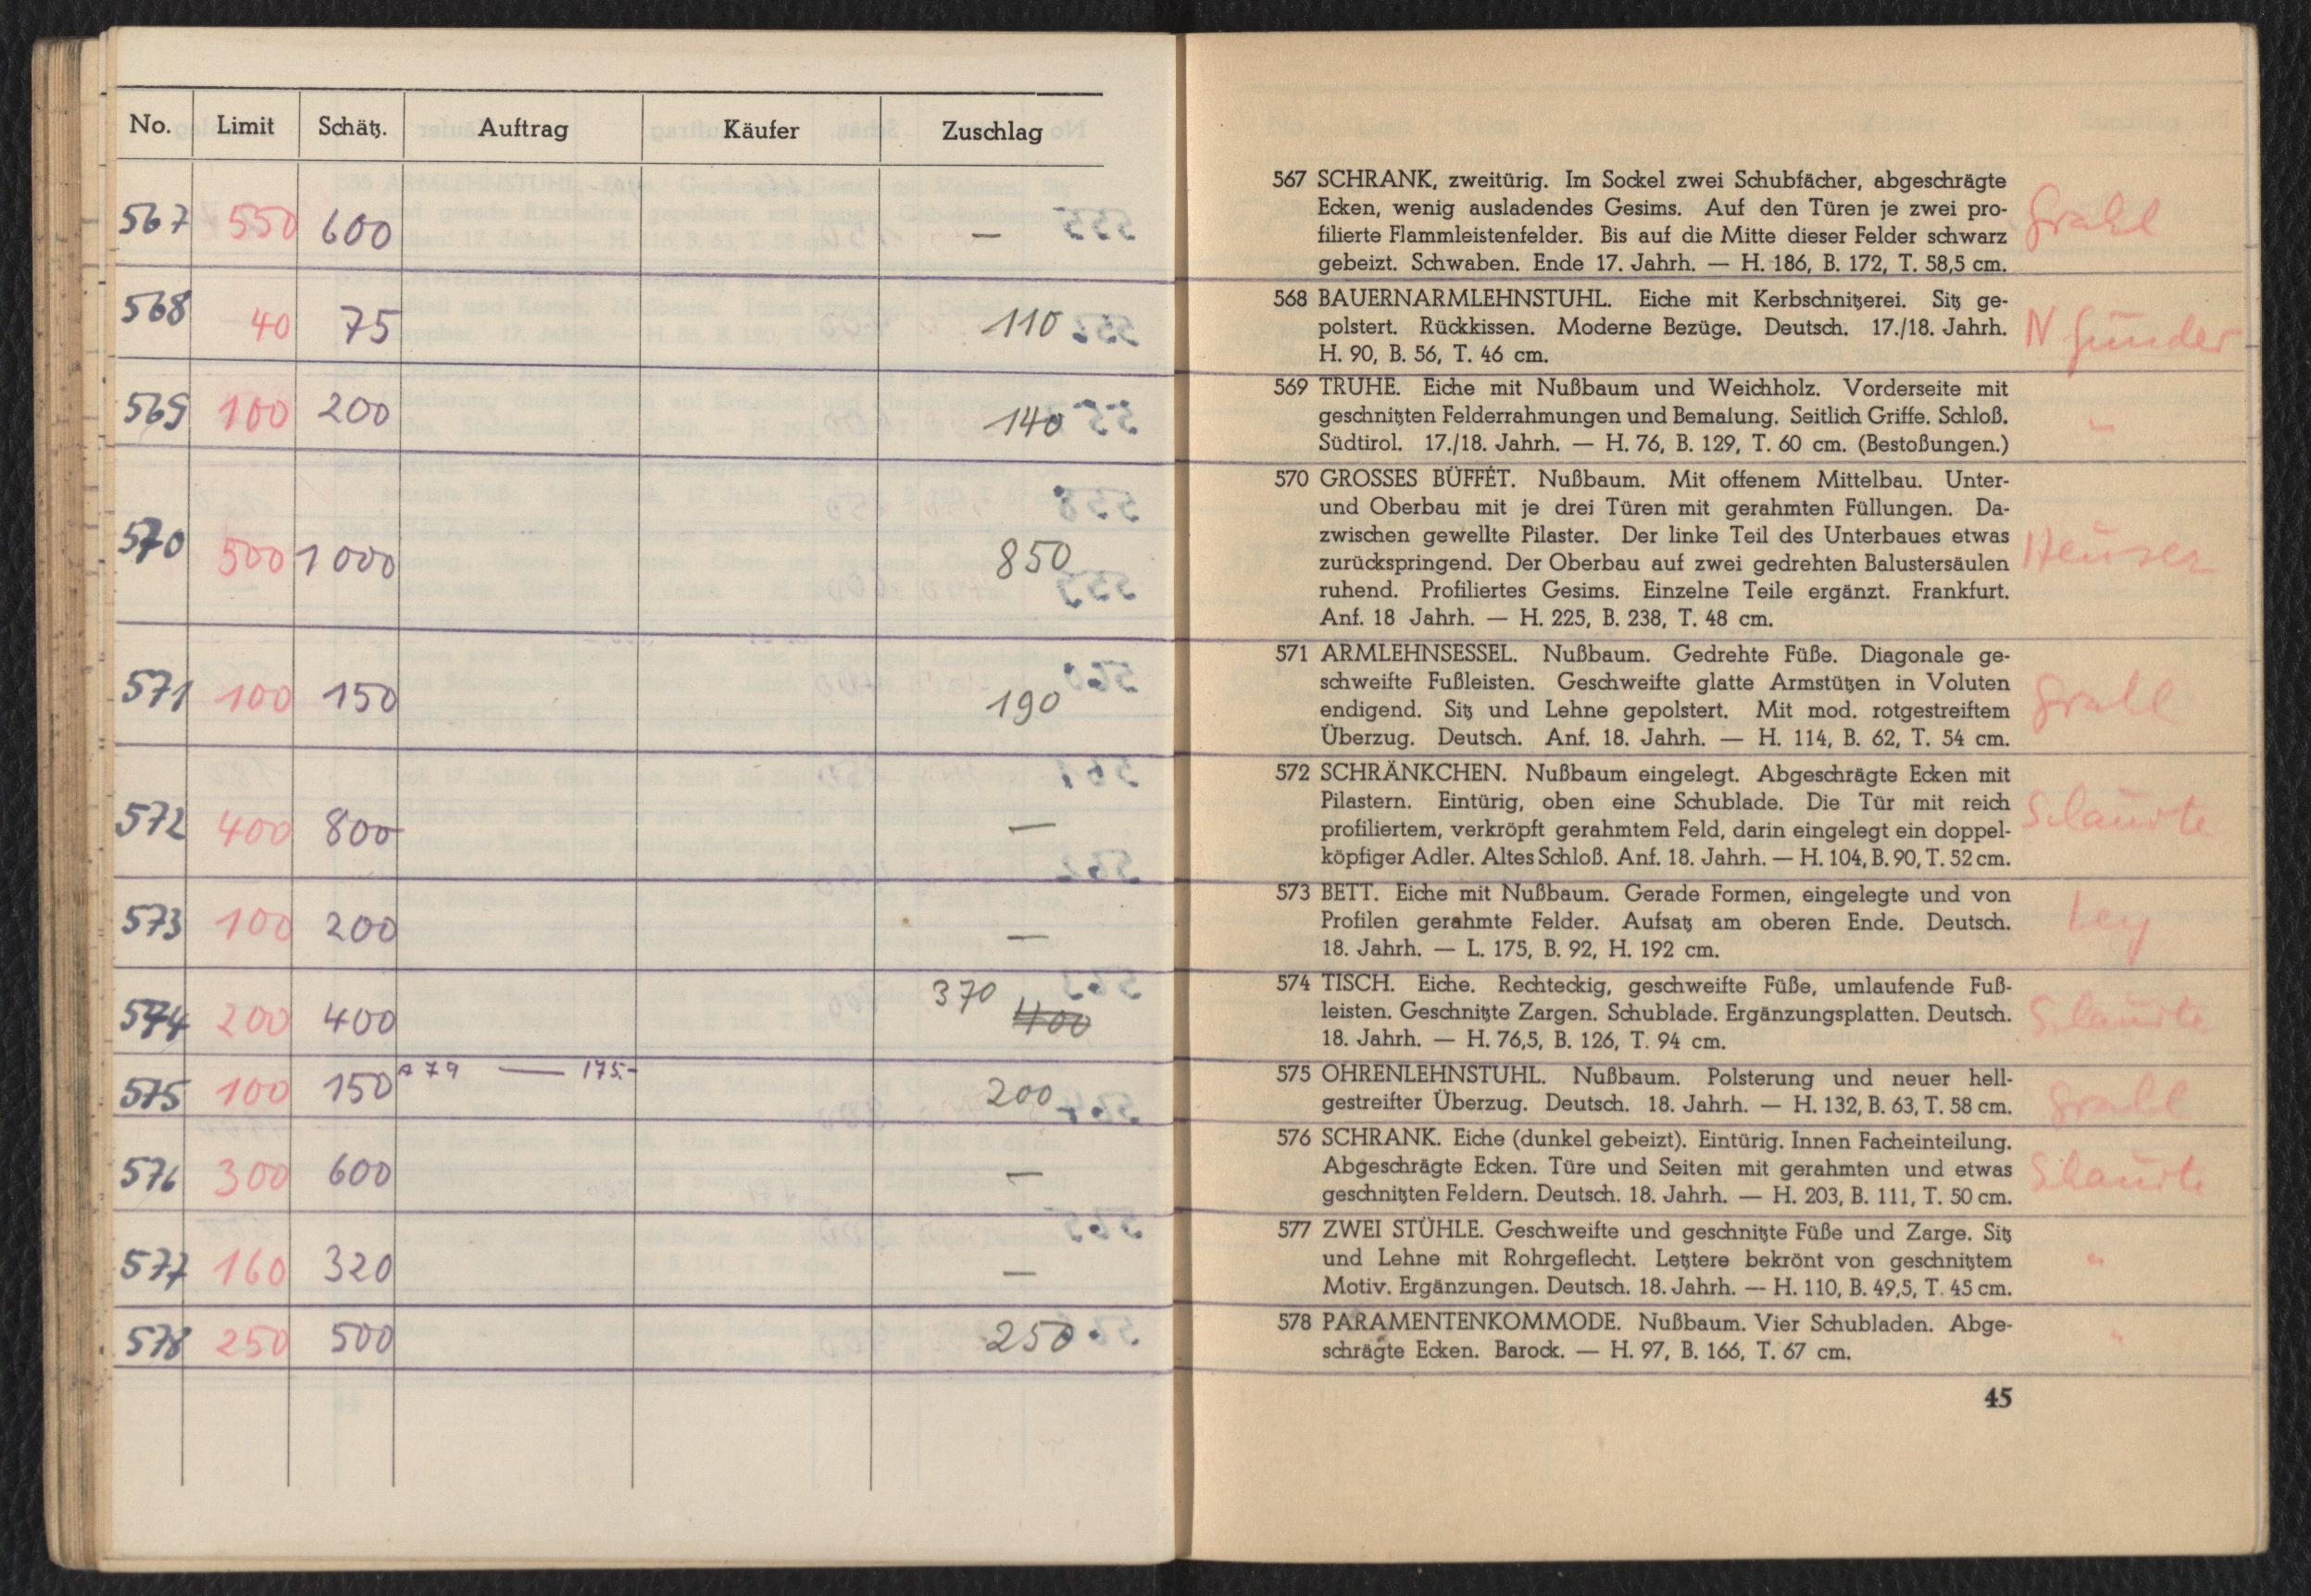 No. Limit Schätz. Auftrag Käufer Zuschlag
567 550 600 —
568 40 75 110
569 100 200 140
570 500 1000 850
571 100 150 190
572 400 800 —
573 100 200 —
574 200 400 370 400
575 100 150 A 79 — 175.- 200
576 300 600 —
577 160 320 —
578 250 500 250
567 SCHRANK, zweitürig. Im Sockel zwei Schubfächer, abgeschrägte
Ecken, wenig ausladendes Gesims. Auf den Türen je zwei pro-
filierte Flammleistenfelder. Bis auf die Mitte dieser Felder schwarz
gebeizt. Schwaben. Ende 17. Jahrh. — H. 186, B. 172, T. 58,5 cm.
Grahl
568 BAUERNARMLEHNSTUHL. Eiche mit Kerbschnitzerei. Sitz ge-
polstert. Rückkissen. Moderne Bezüge. Deutsch. 17./18. Jahrh.
H. 90, B. 56, T. 46 cm.
569 TRUHE. Eiche mit Nußbaum und Weichholz. Vorderseite mit
geschnitzten Felderrahmungen und Bemalung. Seitlich Griffe. Schloß.
Südtirol. 17./18. Jahrh. — H. 76, B. 129, T. 60 cm. (Bestoßungen.)
"
570 GROSSES BÜFFÉT. Nußbaum. Mit offenem Mittelbau. Unter-
und Oberbau mit je drei Türen mit gerahmten Füllungen. Da-
zwischen gewellte Pilaster. Der linke Teil des Unterbaues etwas
zurückspringend. Der Oberbau auf zwei gedrehten Balustersäulen
ruhend. Profiliertes Gesims. Einzelne Teile ergänzt. Frankfurt.
Anf. 18 Jahrh. — H. 225, B. 238, T. 48 cm.
Heuser
571 ARMLEHNSESSEL. Nußbaum. Gedrehte Füße. Diagonale ge-
schweifte Fußleisten. Geschweifte glatte Armstützen in Voluten
endigend. Sitz und Lehne gepolstert. Mit mod. rotgestreiftem
Überzug. Deutsch. Anf. 18. Jahrh. — H. 114, B. 62, T. 54 cm.
Grahl
572 SCHRÄNKCHEN. Nußbaum eingelegt. Abgeschrägte Ecken mit
Pilastern. Eintürig, oben eine Schublade. Die Tür mit reich
profiliertem, verkröpft gerahmtem Feld, darin eingelegt ein doppel-
köpfiger Adler. Altes Schloß. Anf. 18. Jahrh. — H. 104, B. 90, T. 52 cm.
573 BETT. Eiche mit Nußbaum. Gerade Formen, eingelegte und von
Profilen gerahmte Felder. Aufsatz am oberen Ende. Deutsch.
18. Jahrh. — L. 175, B. 92, H. 192 cm.
Ley
574 TISCH. Eiche. Rechteckig, geschweifte Füße, umlaufende Fuß-
leisten. Geschnitzte Zargen. Schublade. Ergänzungsplatten. Deutsch.
18. Jahrh. — H. 76,5, B. 126, T. 94 cm.
575 OHRENLEHNSTUHL. Nußbaum. Polsterung und neuer hell-
gestreifter Überzug. Deutsch. 18. Jahrh. — H. 132, B. 63, T. 58 cm.
Grahl
576 SCHRANK. Eiche (dunkel gebeizt). Eintürig. Innen Facheinteilung.
Abgeschrägte Ecken. Türe und Seiten mit gerahmten und etwas
geschnitzten Feldern. Deutsch. 18. Jahrh. — H. 203, B. 111, T. 50 cm.
577 ZWEI STÜHLE. Geschweifte und geschnitzte Füße und Zarge. Sitz
und Lehne mit Rohrgeflecht. Letztere bekrönt von geschnitztem
Motiv. Ergänzungen. Deutsch. 18. Jahrh. — H. 110, B. 49,5, T. 45 cm.
"
578 PARAMENTENKOMMODE. Nußbaum. Vier Schubladen. Abge-
schrägte Ecken. Barock. — H. 97, B. 166, T. 67 cm.
"
45